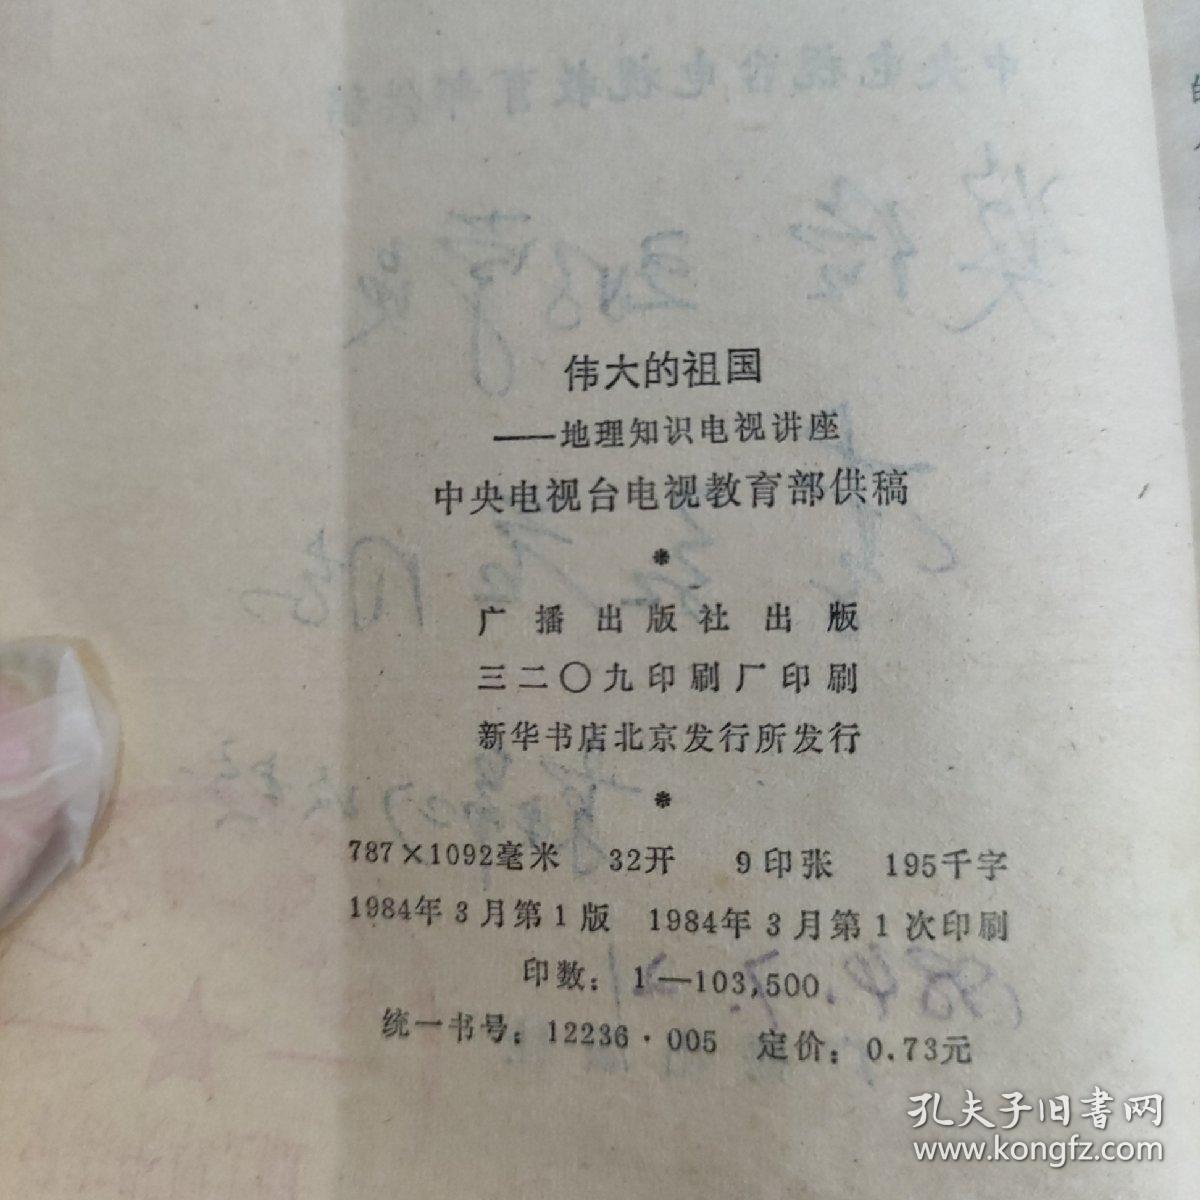 伟大的祖国
——地理知识电视讲座
中央电视台电视教育部供稿
*
广播出版社出版
三二〇九印刷厂印刷
新华书店北京发行所发行
*
787×1092毫米 32开 9印张 195千字
1984年3月第1版 1984年3月第1次印刷
印数：1—103,500
统一书号：12236·005 定价：0.73元
孔夫子旧书网
www.kongfz.com